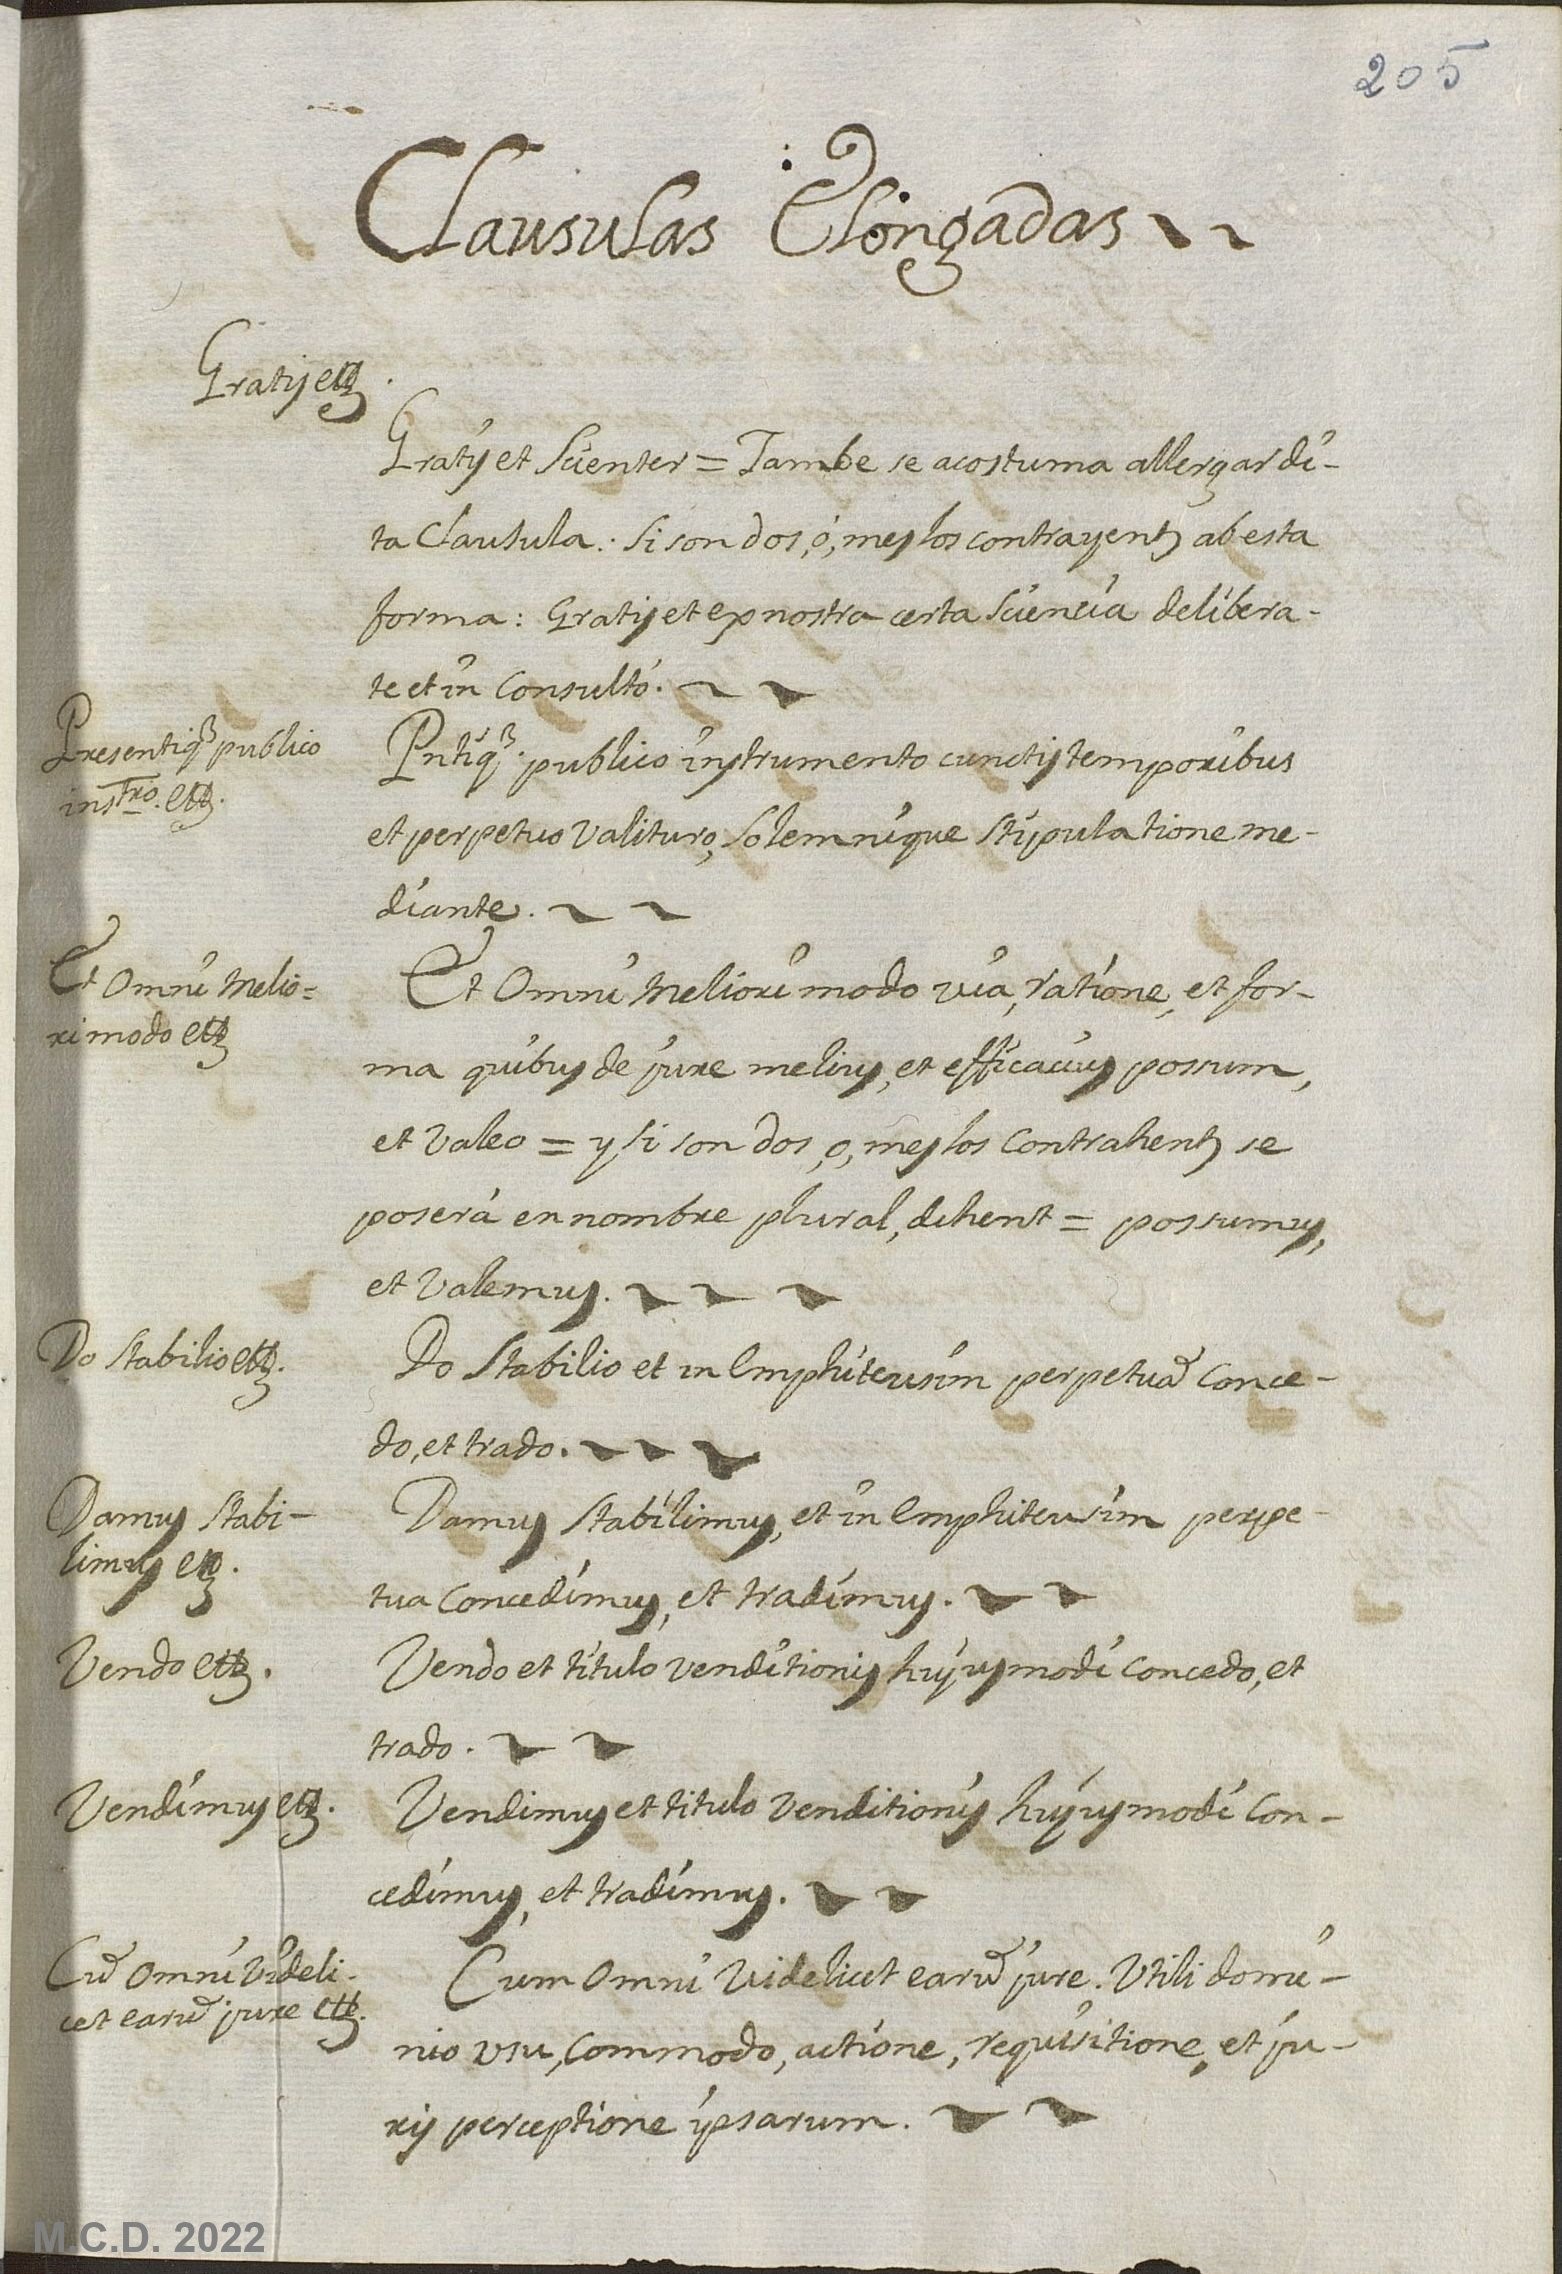 205
Clausulas Elongadas
Gratis ett.ª
Gratis et Scienter = Tambe se acostuma allergar di-
ta Clausula: si son dos, ó, mes los contrayents ab esta
forma: Gratis et ex nostra certa Sciencia delibera-
te et in Consultó.
Presentiq.ᵉ publico
inst.ʳᵒ ett.ª
Pntiq.ᵉ publico instrumento cunctis temporibus
et perpetuo valituro, solemnique stipulatione me-
diante.
Et Omni melio=
ri modo ett.ª
Et Omni Meliori modo via, ratione, et for-
ma quibus de jure melius, et efficacius possum,
et valeo = y si son dos, o, mes los Contrahents se
poserá en nombre plural, dihent = possumus,
et Valemus.
Do Stabilio ett.ª
Do Stabilio et in Emphiteusim perpetuã Conce-
do, et trado.
Damus Stabi-
limus ett.ª
Damus Stabilimus, et in Emphiteusim perpe-
tua Concedimus, et tradimus.
Vendo ett.ª
Vendo et titulo venditionis hujusmodi concedo, et
trado.
Vendimus ett.ª
Vendimus et titulo Venditionis hujusmodi Con-
cedimus, et tradimus.
Cũ Omni Videli-
cet earũ jure ett.ª
Cum Omni Videlicet earũ jure. Utili domi-
nio usu, Commodo, actione, requisitione, et ju-
ris perceptione ipsarum.
M.C.D. 2022